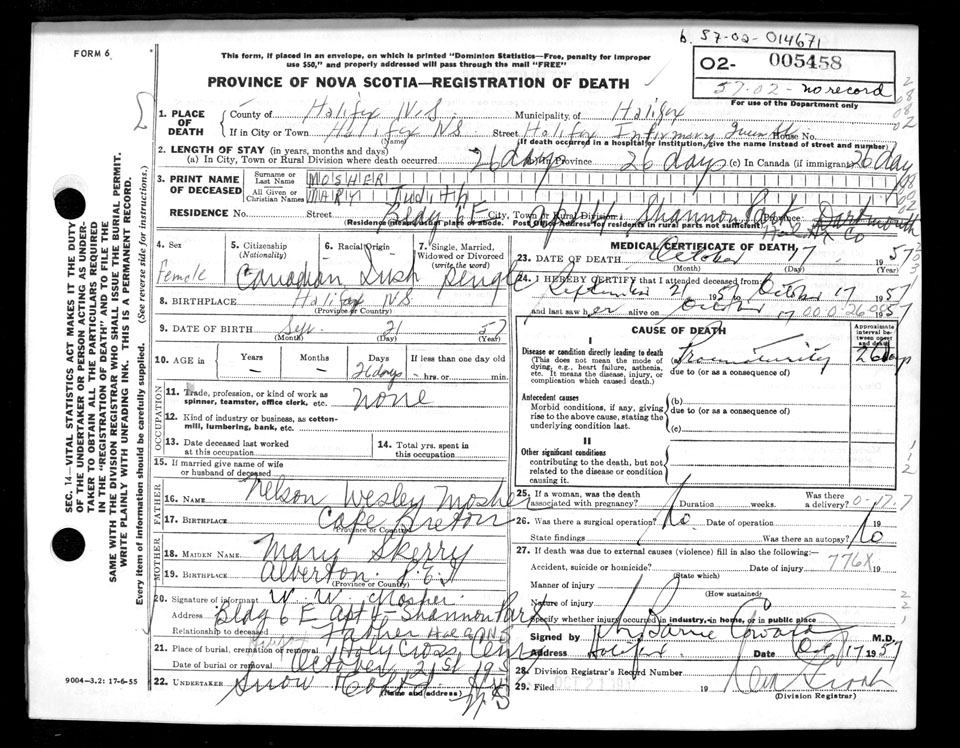 b. 57-02-014671
FORM 6
This form, if placed in an envelope, on which is printed "Dominion Statistics—Free, penalty for improper
use $50," and properly addressed will pass through the mail "FREE"
02- 005458
57-02-no record
PROVINCE OF NOVA SCOTIA—REGISTRATION OF DEATH
For use of the Department only
1. PLACE OF DEATH
County of Halifax N.S
Municipality of Halifax
If in City or Town Halifax NS (Name)
Street Halifax Infirmary Queen St House No.
(If death occurred in a hospital or institution, give the name instead of street and number)
2. LENGTH OF STAY (in years, months and days)
(a) In City, Town or Rural Division where death occurred 26 days (b) In Province 26 days (c) In Canada (if immigrant) 26 days
3. PRINT NAME OF DECEASED
Surname or Last Name MOSHER
All Given or Christian Names MARY Judith
RESIDENCE No. Street Bldg 6E City, Town or Rural Division Apt 4 Shannon Park Dartmouth
Hal. Co
(Residence means usual place of abode. Post Office Address for residents in rural parts not sufficient)
4. Sex
Female
5. Citizenship (Nationality)
Canadian
6. Racial Origin
Irish
7. Single, Married, Widowed or Divorced (write the word)
Single
8. BIRTHPLACE Halifax NS
(Province or Country)
9. DATE OF BIRTH Sep. 21 57
(Month) (Day) (Year)
10. AGE in
Years Months Days If less than one day old
— — 26 days — hrs. or min.
OCCUPATION
11. Trade, profession, or kind of work as spinner, teamster, office clerk, etc. none
12. Kind of industry or business, as cotton-mill, lumbering, bank, etc.
13. Date deceased last worked at this occupation
14. Total yrs. spent in this occupation
15. If married give name of wife or husband of deceased
FATHER
16. NAME Nelson Wesley Mosher
17. BIRTHPLACE Cape Breton
(Province or Country)
MOTHER
18. MAIDEN NAME Mary Skerry
19. BIRTHPLACE Alberton P.E.I
(Province or Country)
20. Signature of informant N. W. Mosher
Address Bldg 6 E apt 4 Shannon Park
Relationship to deceased Father
21. Place of burial, cremation or removal Holy Cross Cem
Date of burial or removal October 21st 195
22. UNDERTAKER Snow
(Name and address) NS
MEDICAL CERTIFICATE OF DEATH
23. DATE OF DEATH October 17 1957
(Month) (Day) (Year)
24. I HEREBY CERTIFY that I attended deceased from
September 21 1957 to October 17 1957
and last saw her alive on October 17 1957
CAUSE OF DEATH
Approximate interval between onset and death
I
Disease or condition directly leading to death
(This does not mean the mode of dying, e.g., heart failure, asthenia, etc. It means the disease, injury, or complication which caused death.)
(a) Prematurity 26 days
due to (or as a consequence of)
Antecedent causes
Morbid conditions, if any, giving rise to the above cause, stating the underlying condition last.
(b)
due to (or as a consequence of)
(c)
II
Other significant conditions
contributing to the death, but not related to the disease or condition causing it.
25. If a woman, was the death associated with pregnancy? Duration weeks Was there a delivery?
26. Was there a surgical operation? No. Date of operation 19
State findings Was there an autopsy? No
27. If death was due to external causes (violence) fill in also the following:—
Accident, suicide or homicide? Date of injury 19
776X
(State which)
Manner of injury
(How sustained)
Nature of injury
Specify whether injury occurred in industry, in home, or in public place
Signed by Barrie Coward M.D.
Address Halifax Date Oct 17 1957
28. Division Registrar's Record Number
29. Filed OCT 21 19
(Division Registrar)
SEC. 14—VITAL STATISTICS ACT MAKES IT THE DUTY
OF THE UNDERTAKER OR PERSON ACTING AS UNDER-
TAKER TO OBTAIN ALL THE PARTICULARS REQUIRED
IN THE "REGISTRATION OF DEATH" AND TO FILE THE
SAME WITH THE DIVISION REGISTRAR WHO SHALL ISSUE THE BURIAL PERMIT.
WRITE PLAINLY WITH UNFADING INK. THIS IS A PERMANENT RECORD.
Every item of information should be carefully supplied. (See reverse side for instructions.)
9004-3.2: 17-6-55